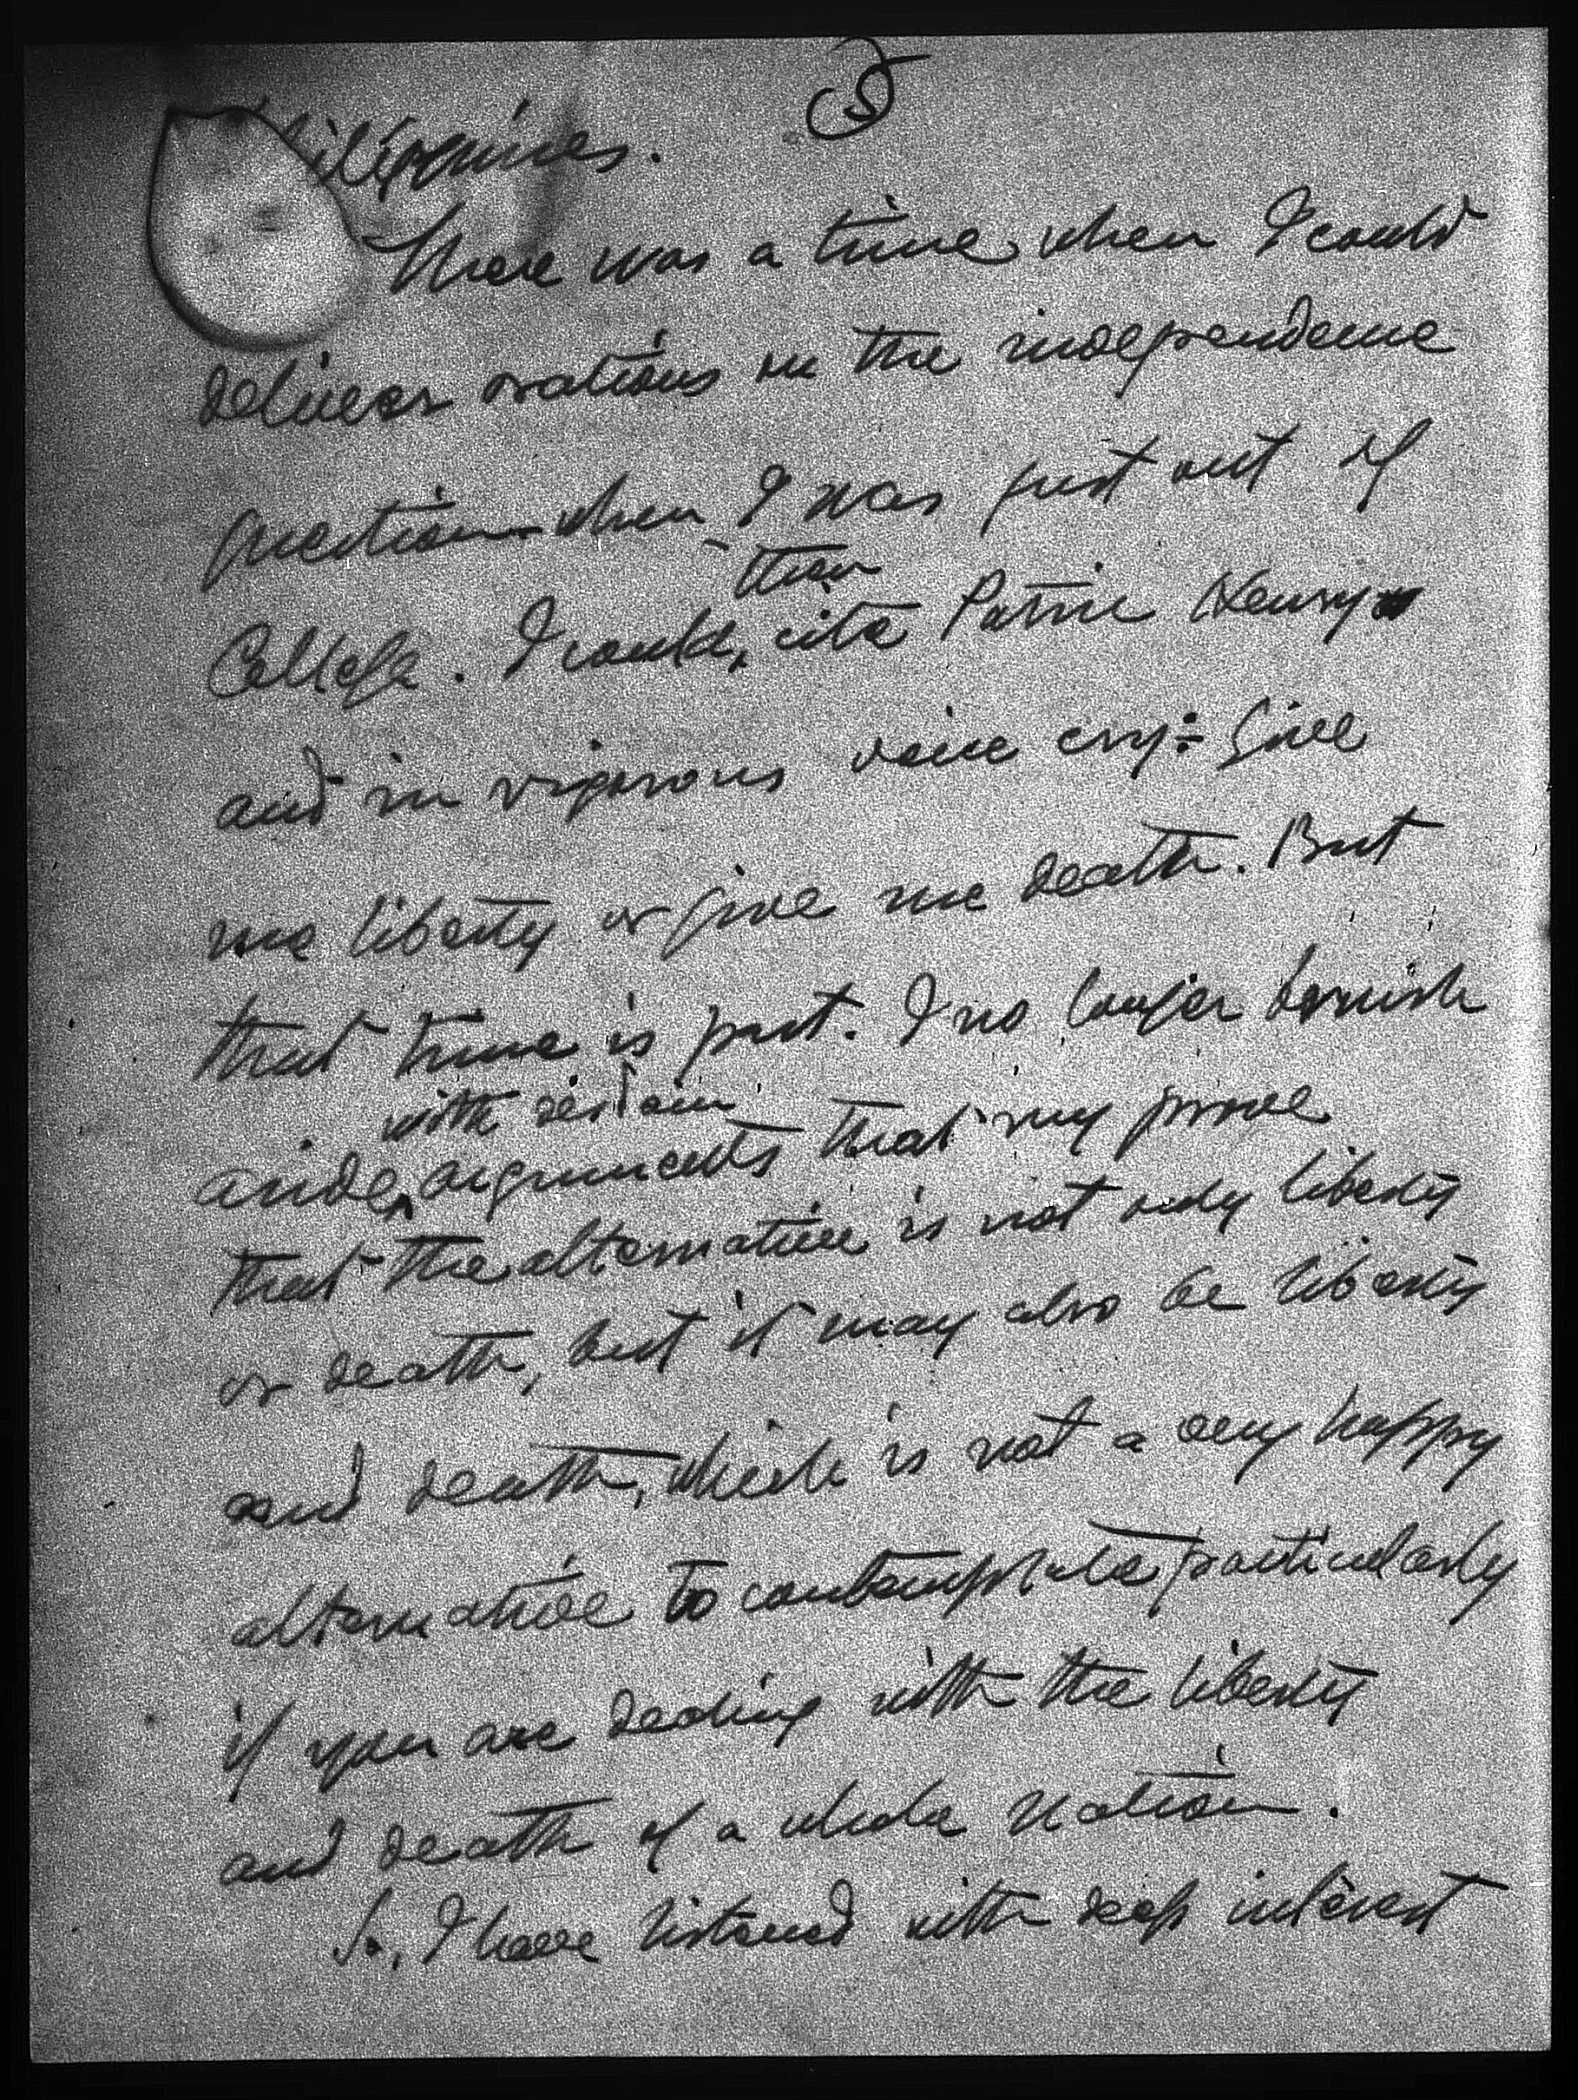 5
Philippines.
There was a time when I could
deliver orations on the independence
question when I was just out of
then
College. I could, cite Patric Henry
and in vigorous voice cry: Give
me liberty or give me death. But
that time is past. I no longer brush
with disdain
aside arguments that my prove
that the alternative is not only liberty
or death, but it may also be liberty
and death, which is not a very happy
alternative to contemplate particularly
if you are dealing with the liberty
and death of a whole nation.
So, I have listened with deep interest